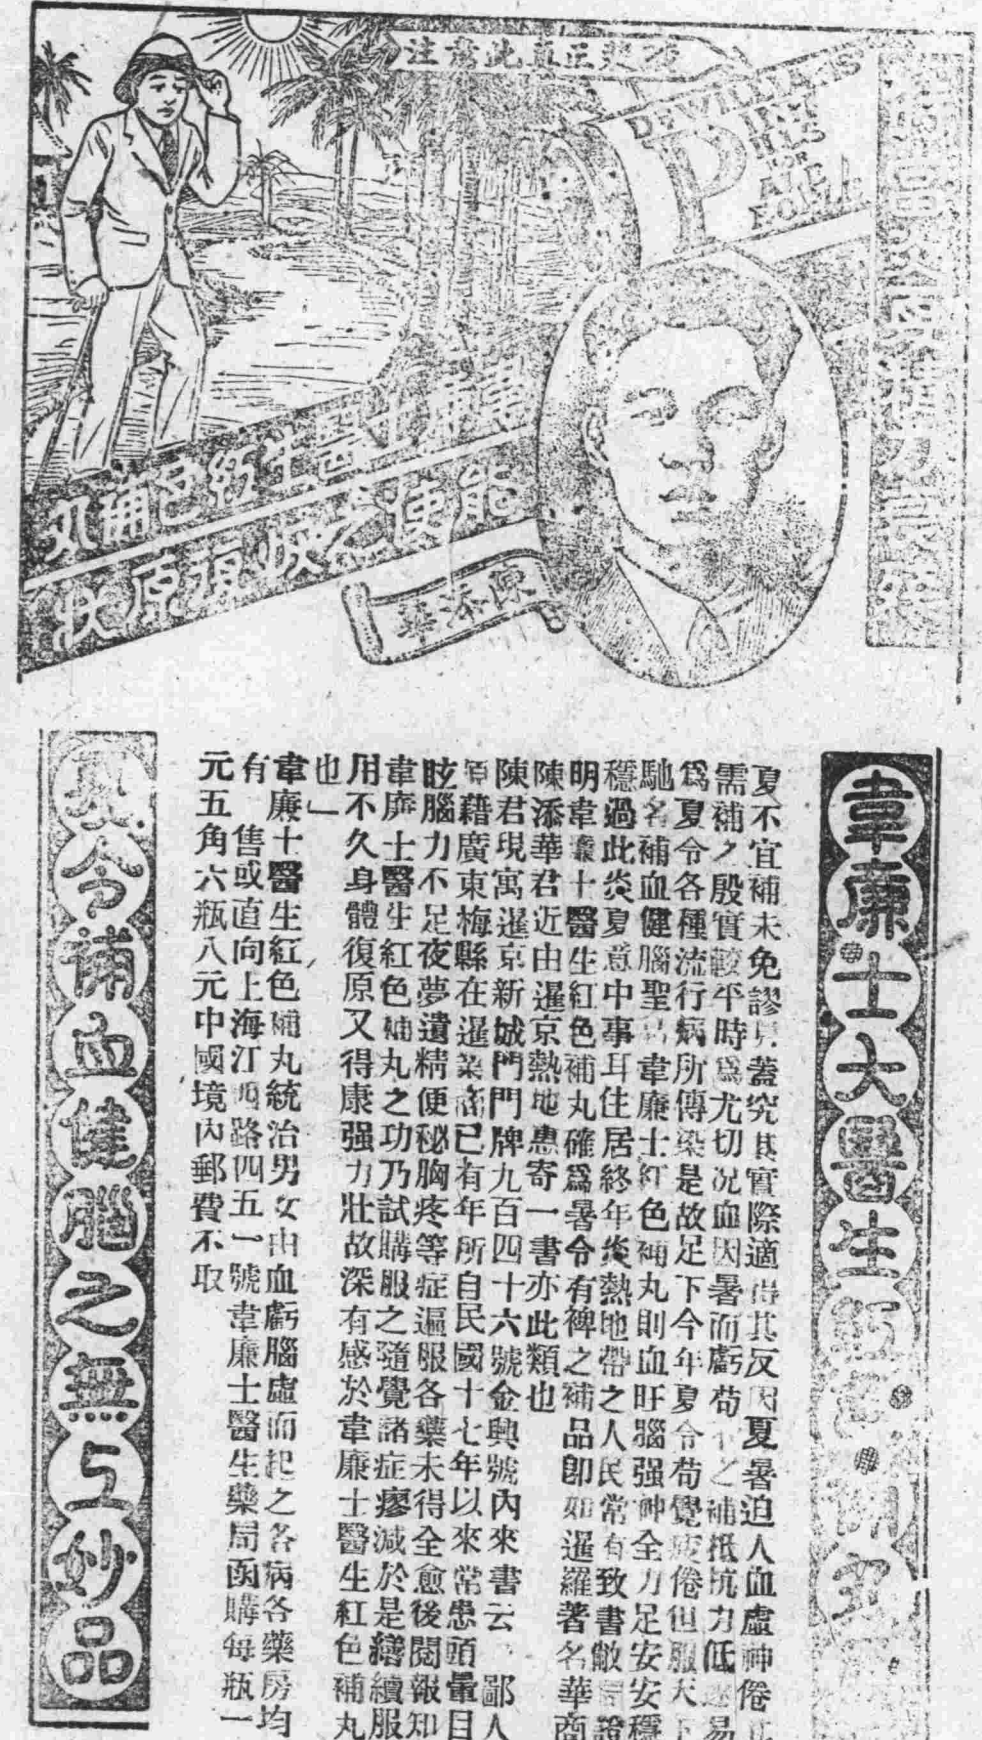 注意此真正裝方
DR WILLIAMS
PINK
PILLS
FOR
PALE
PEOPLE
韋廉士醫生紅色補丸
能使之恢復原狀
陳添華
韋廉士大醫生紅色補丸
夏不宜補未免謬見蓋究其實際適得其反因夏暑迫人血虛神倦正
需補之殷實較平時為尤切況血因暑而虧苟之補抵抗力低易
為夏令各種流行病所傳染是故足下今年夏令苟覺疲倦但服天下
馳名補血健腦聖品韋廉士紅色補丸則血旺腦强神全力足安安穩
穩過此炎夏意中事耳住居終年炎熱地帶之人民常有致書敝證
明韋廉士醫生紅色補丸確為暑令有裨之補品即如暹羅著名華商
陳添華君近由暹京熱地惠寄一書亦此類也
陳君現寓暹京新城門門牌九百四十六號金興號內來書云鄙人
原藉廣東梅縣在暹業商已有年所自民國十七年以來常患頭暈目
眩腦力不足夜夢遺精便秘胸疼等症遍服各藥未得全愈後閱報知
韋廉士醫生紅色補丸之功乃試購服之隨覺諸症瘳減於是繕續服
用不久身體復原又得康强力壯故深有感於韋廉士醫生紅色補丸
也」
韋廉士醫生紅色補丸統治男女由血虧腦虛而起之各病各藥房均
有售或直向上海江西路四五一號韋廉士醫生藥局函購每瓶一
元五角六瓶八元中國境內郵費不取
夏令補血健腦之無上妙品